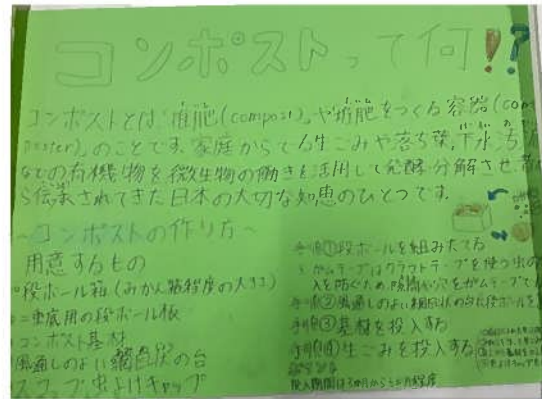 コンポストって何!!?
コンポストとは、堆肥(compost)や堆肥をつくる容器(com
poster)のことです。家庭からでる生ごみや落ち葉、下水汚
などの有機物を微生物の働きを活用して発酵・分解させ、昔
ら伝承されてきた日本の大切な知恵のひとつです。
~コンポストの作り方~
用意するもの
段ボール箱(みかん箱程度の大きさ)
二重底用の段ボール板
コンポスト基材
風通しのよい網目状の台
スコップ、虫よけキャップ
手順①段ボールを組みたてる
ガムテープはクラフトテープを使う虫の
入を防ぐため、隙間や穴をガムテープで
手順②風通しのよい網目状の台に段ボールを
手順③基材を投入する
手順④生ごみを投入する
投入期間は3か月から